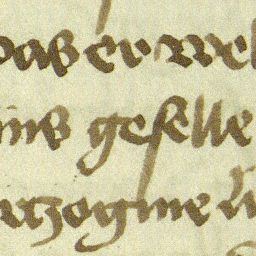 das er wel
ins geselle
rtzogine v